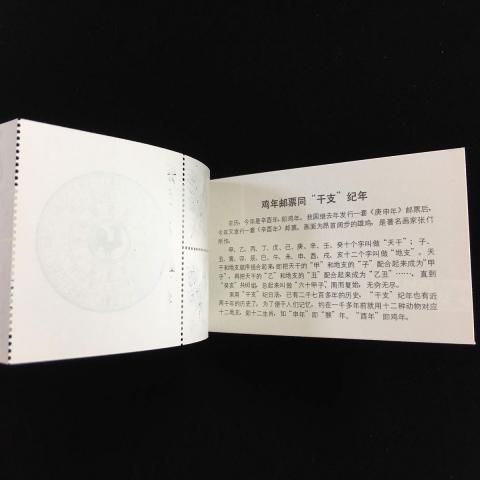 鸡年邮票同“干支”纪年
农历,今年是辛酉年,即鸡年。我国继去年发行一套《庚申年》邮票后,
今年又发行一套《辛酉年》邮票。画面为昂首阔步的雄鸡,是著名画家张仃
所作。
甲、乙、丙、丁、戊、己、庚、辛、壬、癸十个字叫做“天干”;子、
丑、寅、卯、辰、巳、午、未、申、酉、戌、亥十二个字叫做“地支”。天
干和地支顺序组合起来,即把天干的“甲”和地支的“子”配合起来成为“甲
子”,再把天干的“乙”和地支的“丑”配合起来成为“乙丑”……,直到
“癸亥”共60组,总起来叫做“六十甲子”周而复始,无穷无尽。
采用“干支”纪日法,已有二千七百多年的历史。“干支”纪年也有近
两千年的历史了。为了便于人们记忆,约在一千多年前就用十二种动物对应
十二地支,即十二生肖,如“申年”即“猴”年、“酉年”即鸡年。